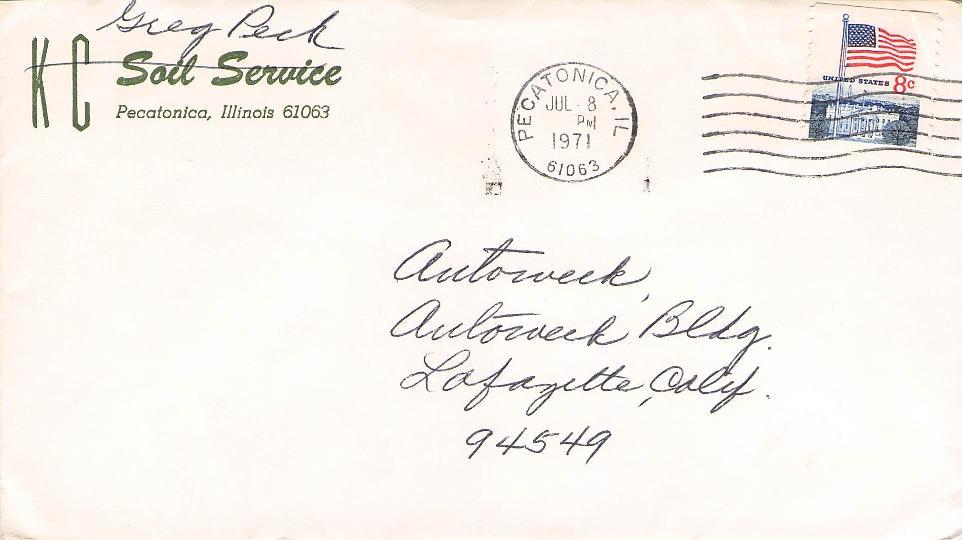 Greg Peck
KC Soil Service
Pecatonica, Illinois 61063
PECATONICA, IL
JUL 8
PM
1971
61063
UNITED STATES 8c
Autoweek,
Autoweek Bldg.
Lafayette, Calif.
94549